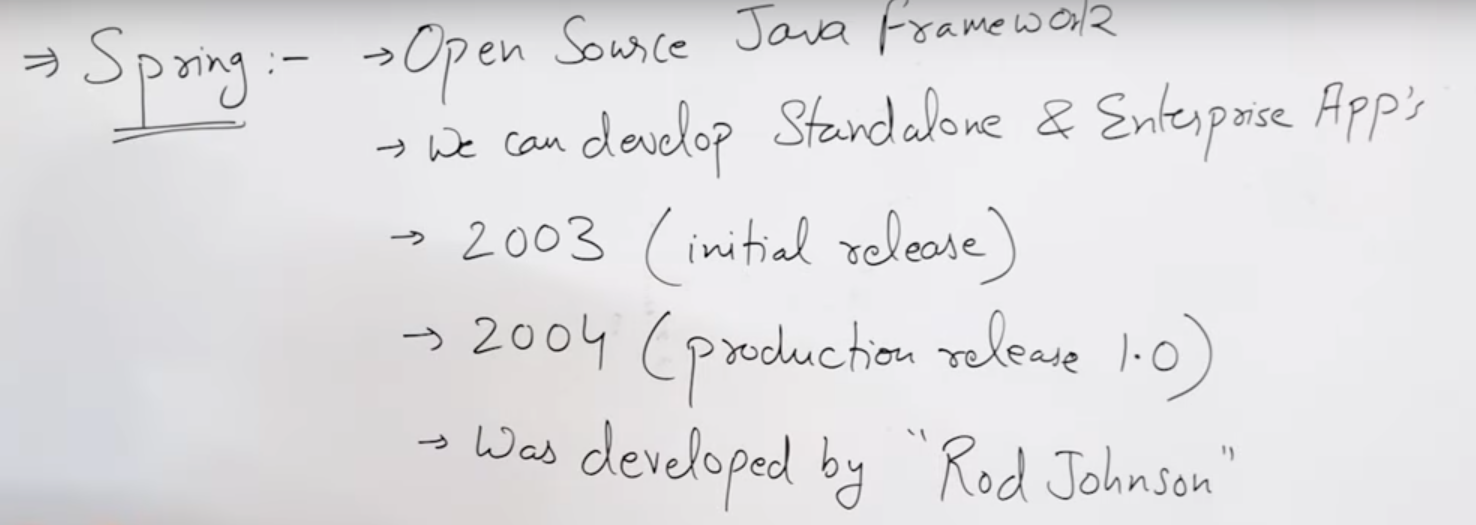 ⇒ Spring :- → Open Source Java Framework
→ We can develop Standalone & Enterprise App's
→ 2003 (initial release)
→ 2004 (production release 1.0)
→ Was developed by "Rod Johnson"